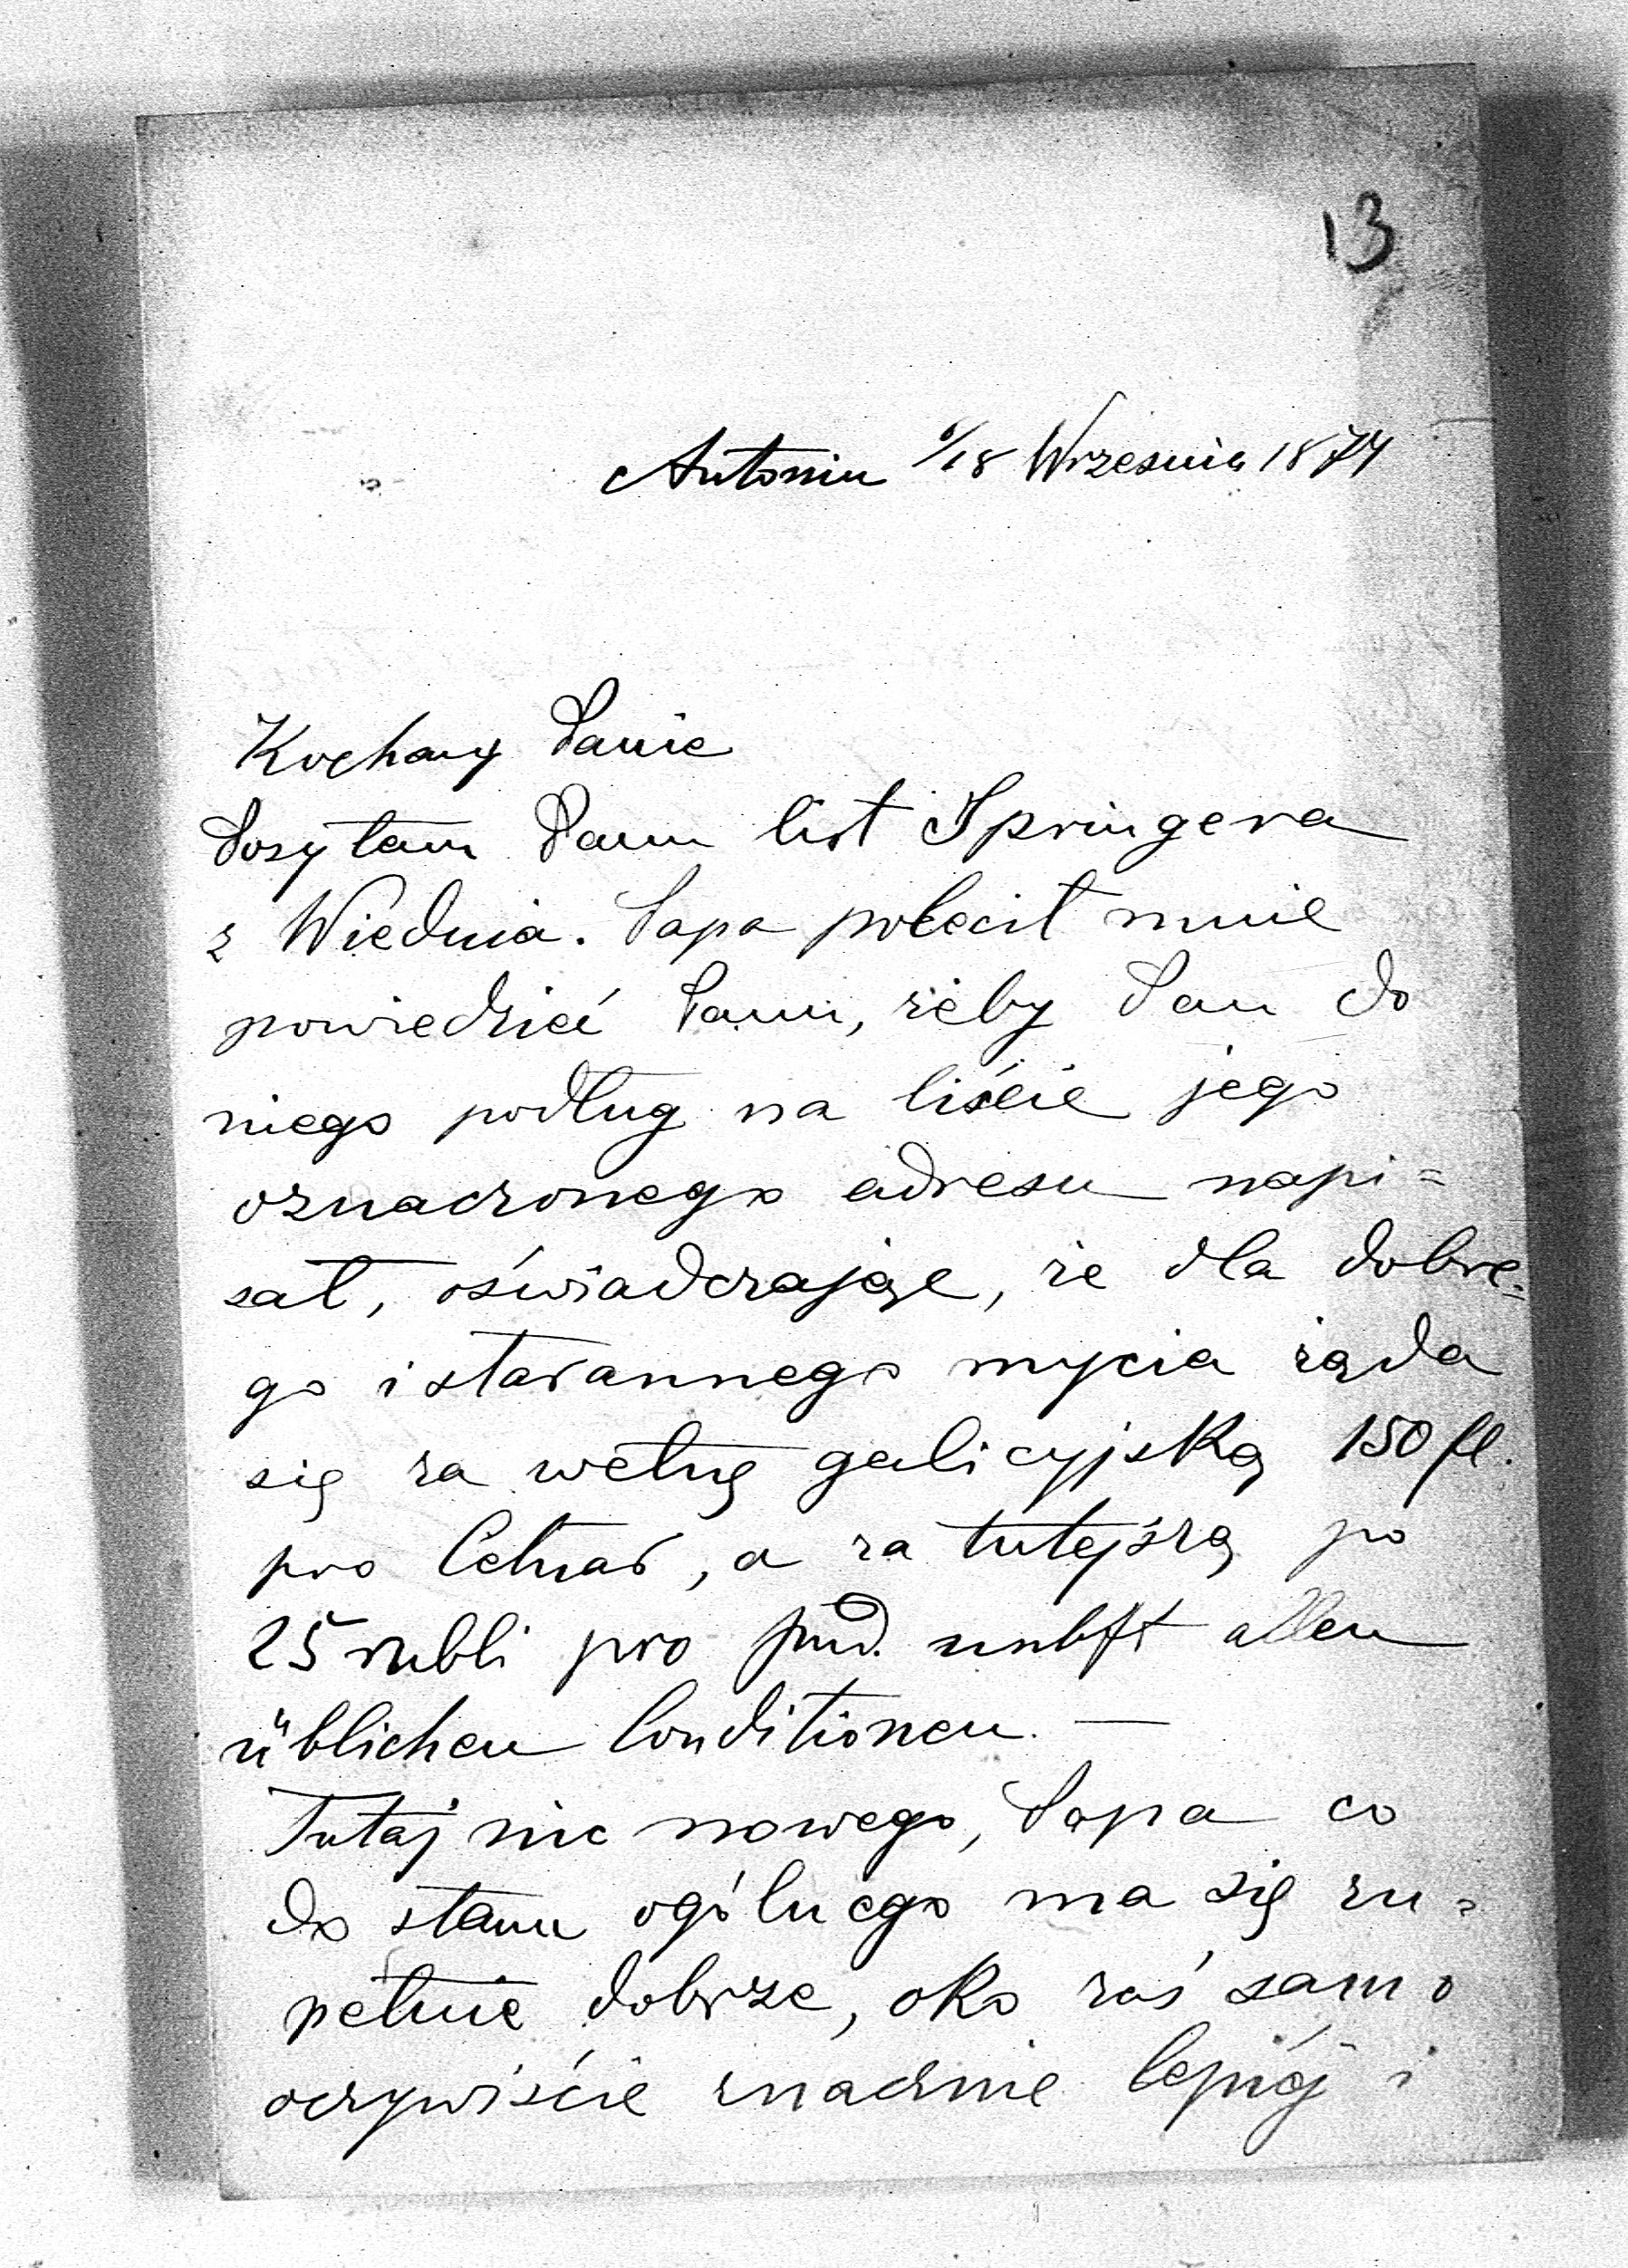 13
Antonin 6/18 Wrzesnia 1874
Kochany Panie
Posyłam Panu list Springera
z Wiednia. Papa polecił mnie
powiedzieć Panu, żeby Pan do
niego podług na liście jego
oznaczonego adresu napi=
sał, oświadczając, że dla dobre=
go i starannego mycia żąda
się za wełnę galicyjską 150 fl.
pro Cetnar, a za tutejszą po
25 rubli pro pud. nebst allen
üblichen Conditionen. —
Tutaj nic nowego, Papa co
do stanu ogólnego ma się zu=
pełnie dobrze, oko zaś samo
oczywiście znacznie lepiéj i